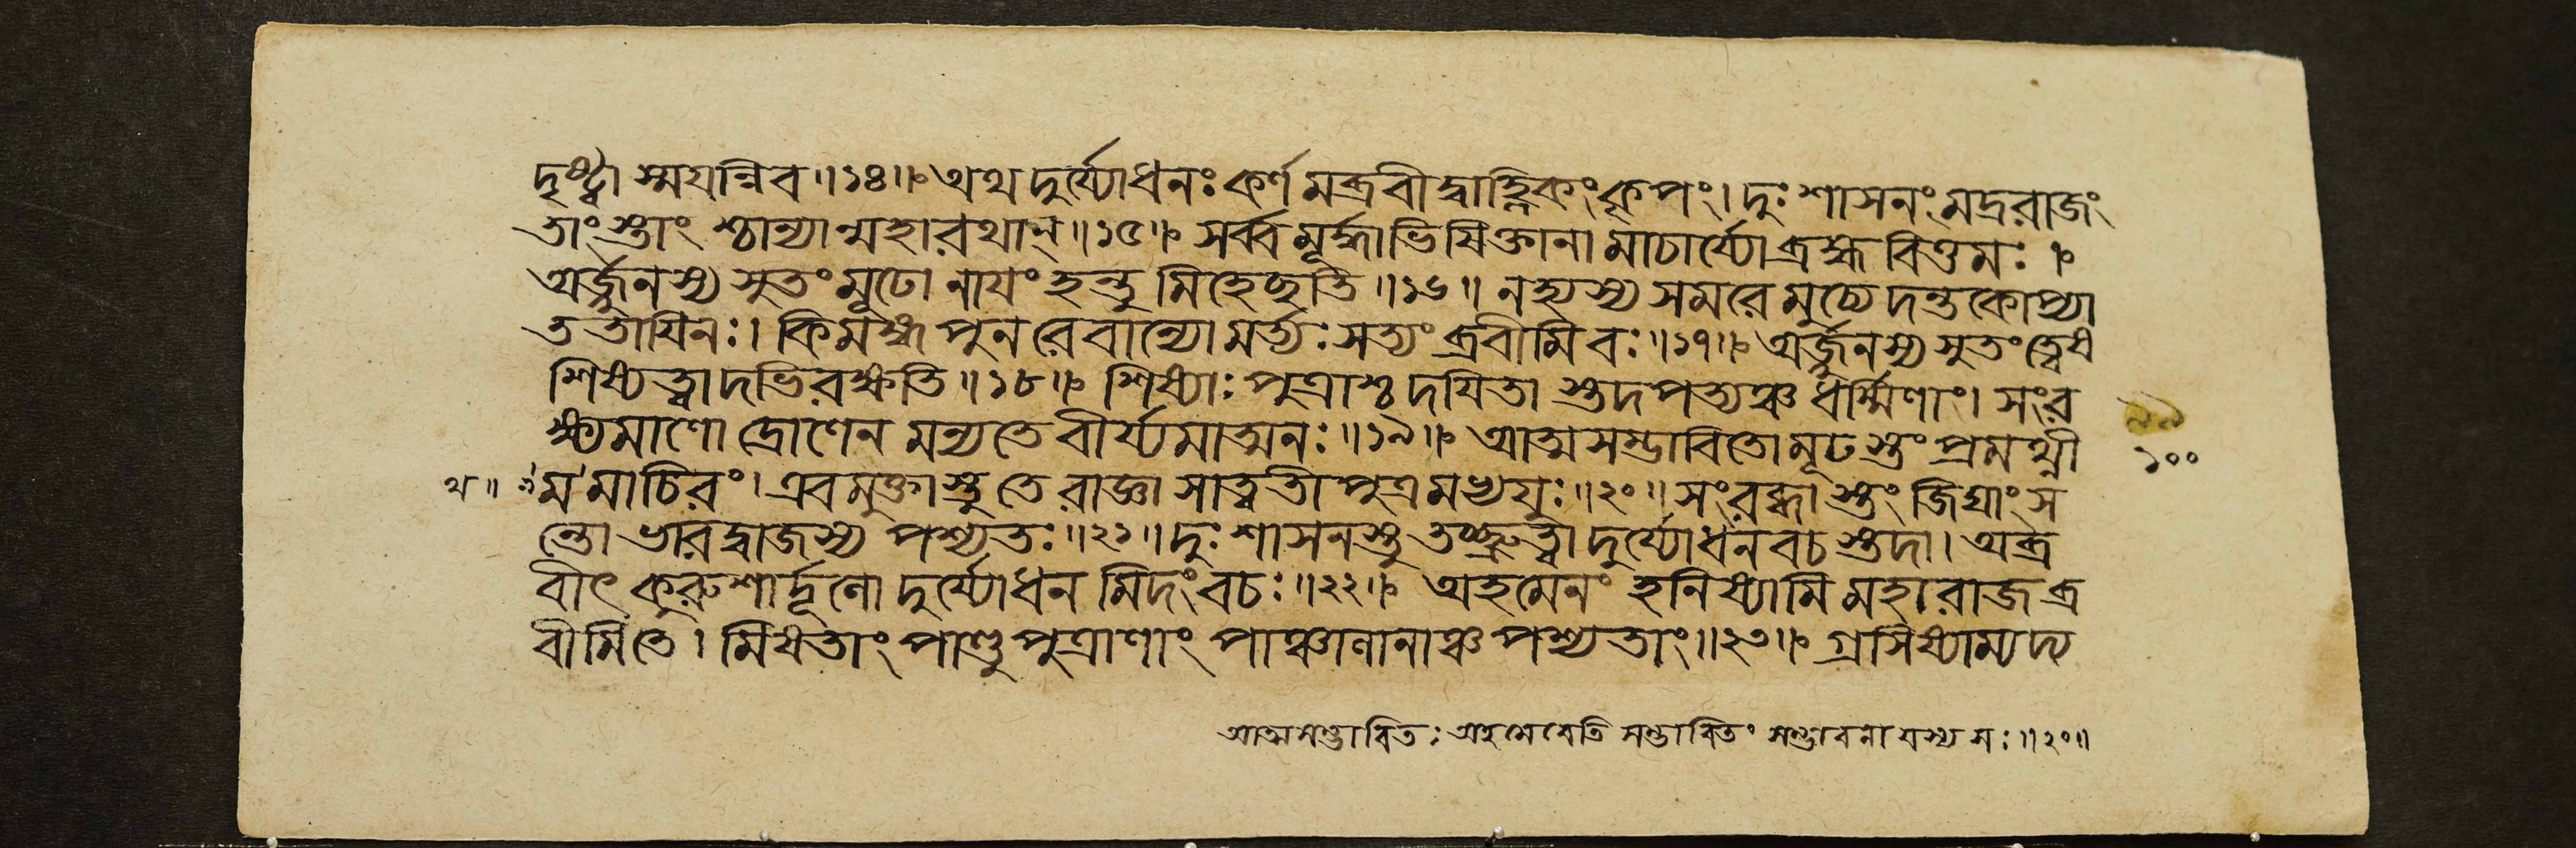 দৃষ্ট্বা স্ময়ন্নিব॥১৪॥ অথ দুর্য্যোধনঃ কর্ণমব্রবীদ্বাহ্লিকং কৃপং। দুঃশাসনং মদ্ররাজং
তাংস্তাংশ্চান্যান্মহারথান্॥১৫॥ সর্ব্বমূর্দ্ধাভিষিক্তানামাচার্য্যো ব্রহ্মবিত্তমঃ।
অর্জ্জুনস্য সুতং মূঢো নায়ং হন্তুমিহেছতি॥১৬॥ নহ্যস্য সমরে মুচ্যেদন্তকোপ্যা
ততায়িনঃ। কিমঙ্গ পুনরেবান্যো মর্ত্যঃ সত্যং ব্রবীমি বঃ॥১৭॥ অর্জ্জুনস্য সুতং ত্বেষ
শিষ্যত্বাদভিরক্ষতি॥১৮॥ শিষ্যাঃ পুত্রাশ্চ দয়িতাস্তদপত্যঞ্চ ধর্ম্মিণাং। সংর
ক্ষ্যমাণো দ্রোণেন মন্যতে বীর্য্যমাত্মনঃ॥১৯॥ আত্মসম্ভাবিতো মূঢস্তং প্রমথ্নী
ম মাচিরং। এবমুক্তাস্তু তে রাজ্ঞা সাত্বতীপুত্রমভ্যয়ুঃ॥২০॥ সংরব্ধাস্তং জিঘাংস
ন্তো ভারদ্বাজস্য পশ্যতঃ॥২১॥ দুঃশাসনস্তু তচ্ছ্রুত্বা দুর্য্যোধনবচস্তদা। অব্র
বীৎ কুরুশার্দ্দূলো দুর্য্যোধনমিদং বচঃ॥২২॥ অহমেনং হনিষ্যামি মহারাজ ব্র
বীমি তে। মিষতাং পাণ্ডুপুত্রাণাং পাঞ্চালানাঞ্চ পশ্যতাং॥২৩॥ গ্রসিষ্যাম্যদ্য
১০০
থ॥
আত্মসম্ভাবিতঃ অহমেবেতি সম্ভাবিতং সম্ভাবনা যস্য সঃ॥২০॥